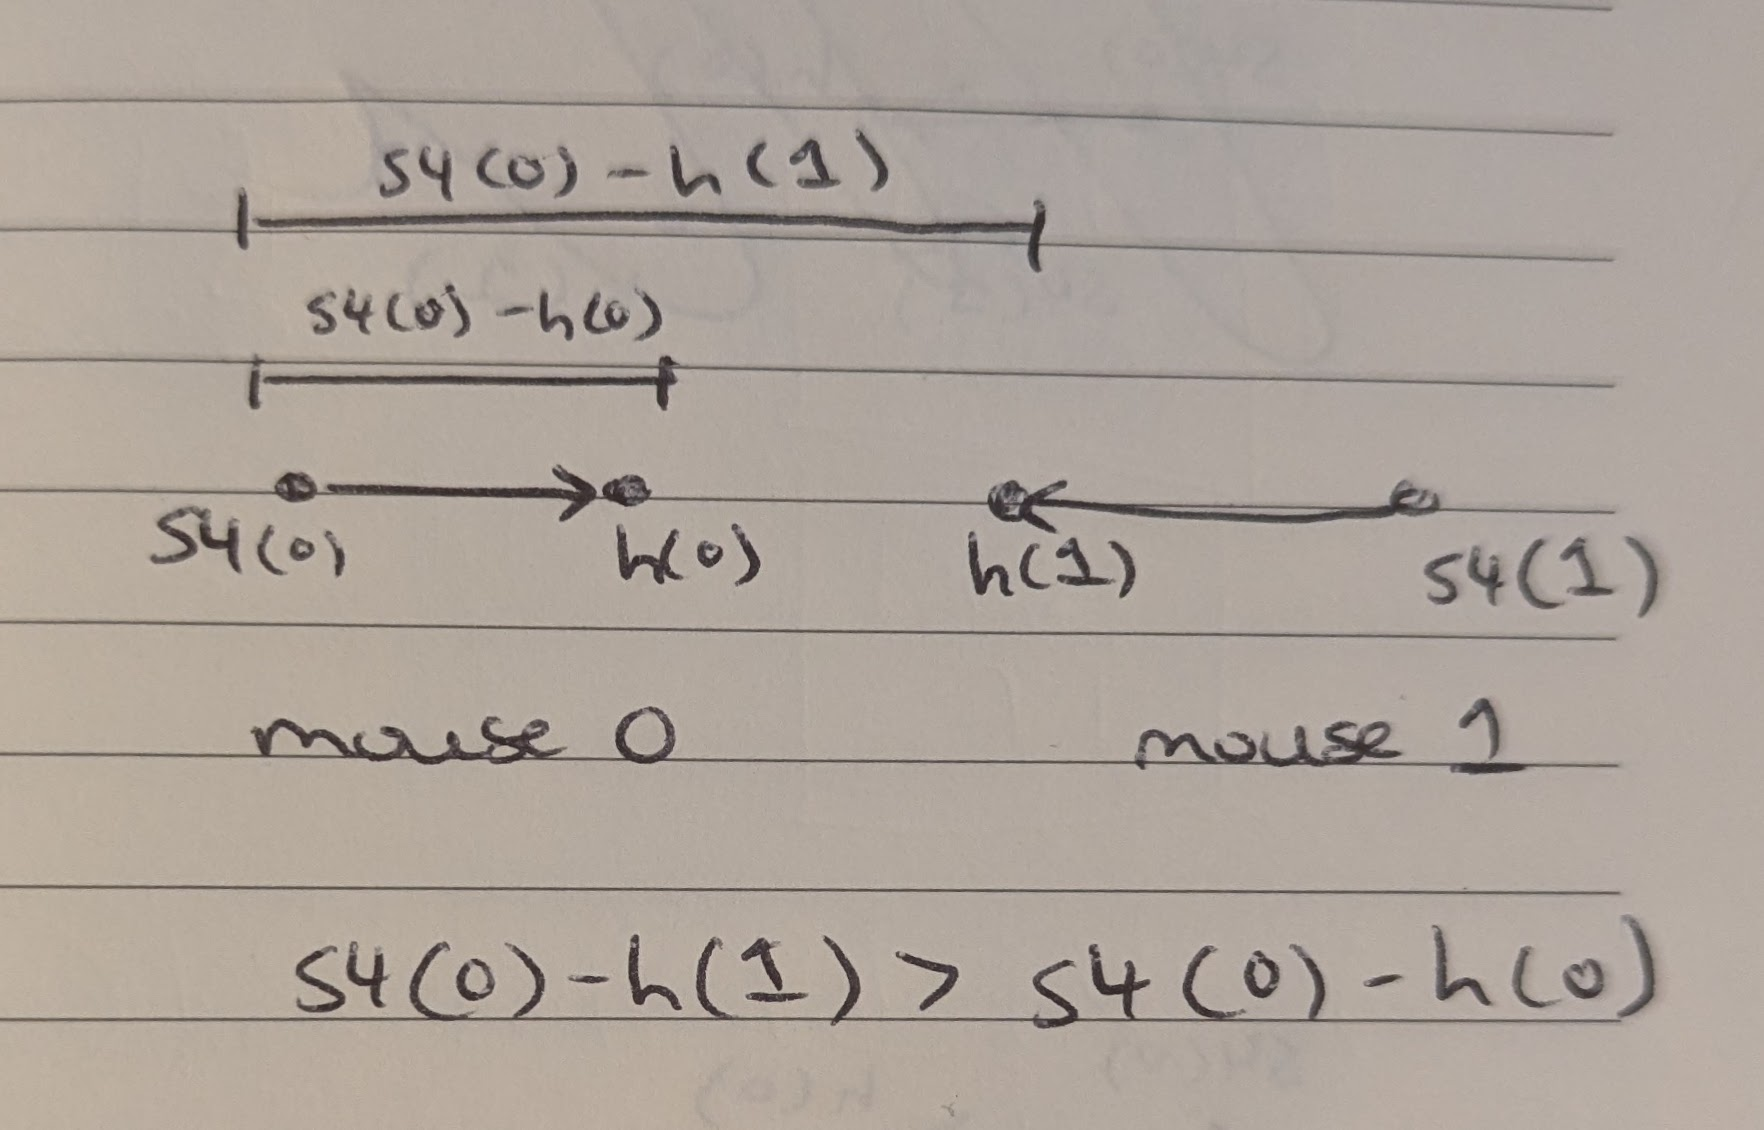 S4(0) - h(1)
S4(0) - h(0)
S4(0) h(0) h(1) S4(1)
mouse 0 mouse 1
S4(0) - h(1) > S4(0) - h(0)